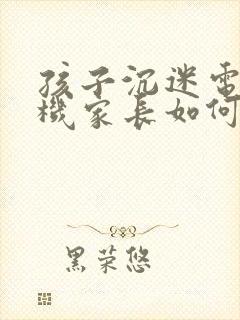 孩子沉迷電
機家長如何
黑荣悠